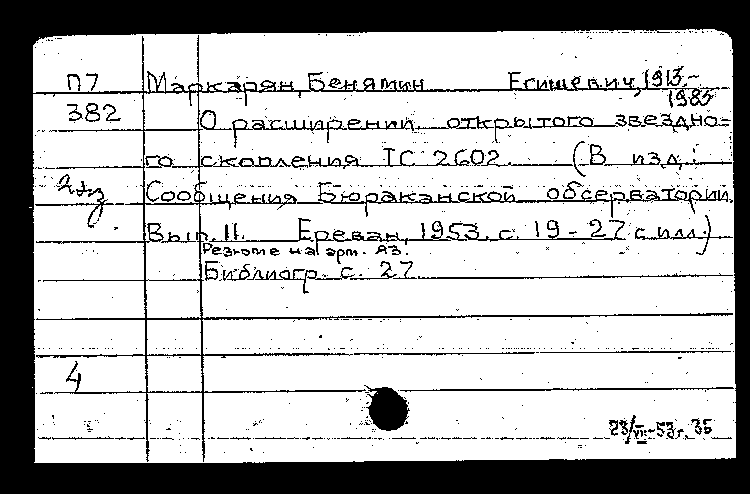 П7 Маркарян, Бенямин Егишевич, 1913-
1985
382 О расширении открытого звездно=
го скопления IC 2602. (В изд.:
2 экз. Сообщения Бюраканской обсерватории.
Вып. 11. Ереван, 1953. с. 19-27 с илл.)
Резюме на арм. яз.
Библиогр. с. 27
4
23/VII-53г. 35